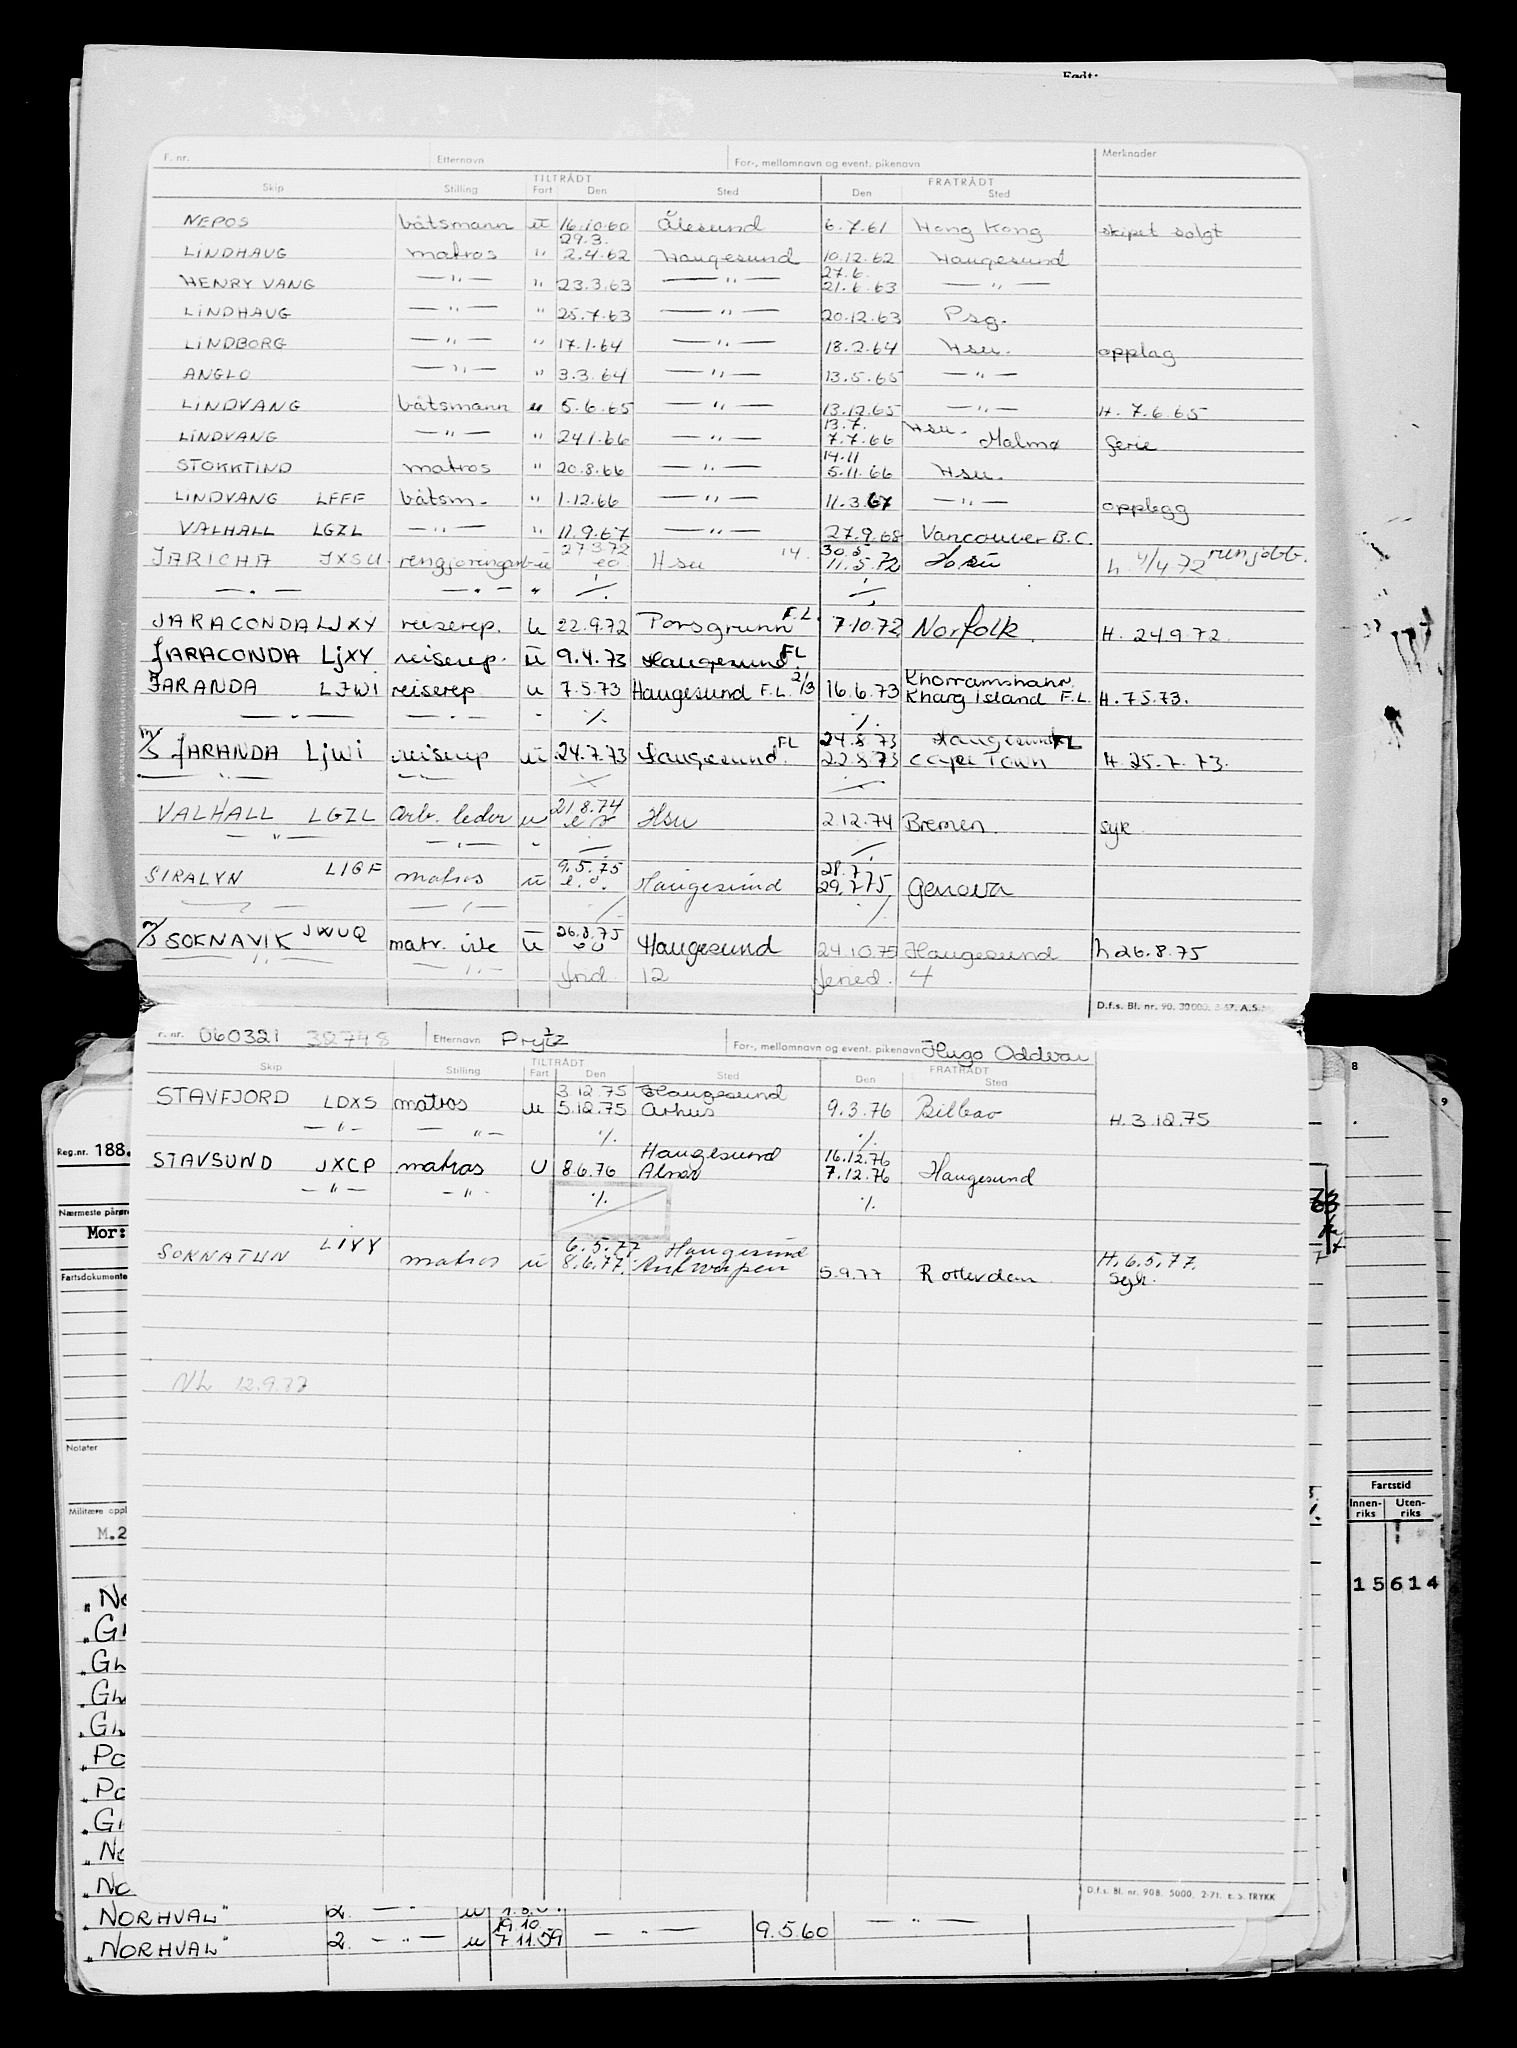 Født:
F. nr. Etternavn For-, mellomnavn og event. pikenavn Merknader
TILTRÅDT FRATRÅDT
Skip Stilling Fart Den Sted Den Sted
NEPOS båtsmann u 16.10.60 Ålesund 6.7.61 Hong Kong skipet solgt
29.3.
LINDHAUG matros " 2.4.62 Haugesund 10.12.62 Haugesund
27.6.
HENRY VANG — " — " 23.3.63 — " — 21.6.63 — " —
LINDHAUG — " — " 25.7.63 — " — 20.12.63 Psg.
LINDBORG — " — " 17.1.64 — " — 18.2.64 Hsu. opplag
ANGLO — " — " 3.3.64 — " — 13.5.65 — " —
LINDVANG båtsmann u 5.6.65 — " — 13.12.65 — " — H. 7.6.65
13.7. Hsu.
LINDVANG — " — " 24.1.66 — " — 7.7.66 Malmø ferie
14.11
STOKKTIND matros " 20.8.66 — " — 5.11.66 Hsu.
LINDVANG LFFF båtsm. " 1.12.66 — " — 11.3.67 — " — opplegg
VALHALL LGZL — " — " 11.9.67 — " — 27.9.68 Vancouver B.C.
27.3.72 14. 30.5
JARICHA JXSU rengjøringsarb u eo Hsu 11.5.72 Hsu h. 4/4 72 runjobb.
— " — — " — " ./. ./.
JARACONDA LJXY reiserep. u 22.9.72 Porsgrunn F.L. 7.10.72 Norfolk. H. 24.9.72.
JARACONDA LJXY reiserep. u 9.4.73 Haugesund. FL
2/3 Khorramshahr.
JARANDA LJWI reiserep u 7.5.73 Haugesund F.L. 16.6.73 Kharg island F.L. H. 7.5.73.
— " — — " — " ./. ./.
24.8.73 Haugesund FL
M/S JARANDA LJWI reiserep u 24.7.73 Haugesund. FL 22.8.73 Cape Town H. 25.7.73.
— " — — " — ./. ./.
21.8.74
VALHALL LGZL Arb. leder u Hsu 2.12.74 Bremen. syk
— " — — " — " ./. ./.
9.5.75 28.7
SIRALYN LIGF matros u e.o. Haugesund 29.7.75 Genova
— " — — " — ./. ./.
26.8.75
M/S SOKNAVIK JWUQ matr. u eo Haugesund 24.10.75 Haugesund h 26.8.75
— " — — " — 12 4
D.f.s. Bl. nr. 90. 30000. 3-67. A.S.
F. nr. 060321 38748 Etternavn Prytz For-, mellomnavn og event. pikenavn Hugo Oddvar
TILTRÅDT FRATRÅDT
Skip Stilling Fart Den Sted Den Sted
3.12.75 Haugesund
STAVFJORD LDXS matros u 5.12.75 Århus 9.3.76 Bilbao H. 3.12.75
— " — — " — ./. ./.
Haugesund 16.12.76
STAVSUND JXCP matros U 8.6.76 7.12.76 Haugesund
— " — — " — ./. ./.
6.5.77 Haugesund
SOKNATUN LIYY matros u 8.6.77. Antwerpen 5.9.77 Rotterdam H. 6.5.77.
Nh 12.9.77
D.f.s. Bl. nr. 90B. 5000. 2-71. E.S. TRYKK
Reg.nr. 188.
Nærmeste pårøre
Mor:
Fartsdokumente
Notater
Militære oppl
M.2
"No
"Gl
"Gl
"Gl
"Gl
"Po
"Po
"Gl
"No
"No
"NORHVAL" 2. — " — u
19.10.
"NORHVAL" 2. — " — u 7.11.59 — " — 9.5.60 — " —
8
9
Fartstid
Innen-riks Uten-riks
15614